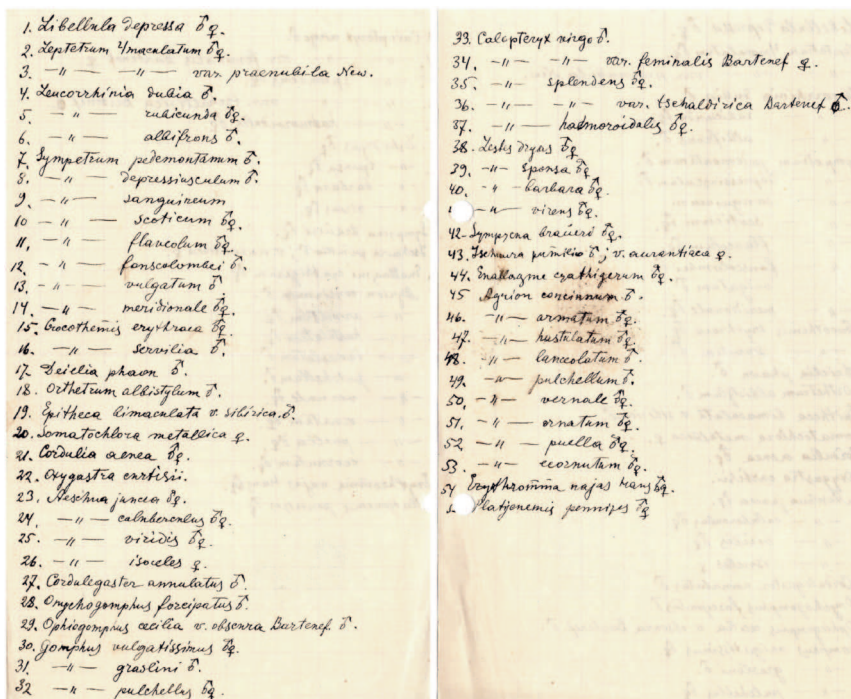 1. Libellula depressa ♂♀.
2. Leptetrum 4maculatum ♂♀.
3. -〃- -〃- var. praenubila New.
4. Leucorrhinia dubia ♂.
5. -〃- rubicunda ♂♀.
6. -〃- albifrons ♂.
7. Sympetrum pedemontanum ♂.
8. -〃- depressiusculum ♂.
9. -〃- sanguineum
10 -〃- scoticum ♂♀.
11. -〃- flaveolum ♂♀.
12. -〃- fonscolombei ♂.
13. -〃- vulgatum ♂.
14. -〃- meridionale ♂♀.
15. Crocothemis erythraea ♂♀
16. -〃- servilia ♂.
17. Deielia phaon ♂.
18. Orthetrum albistylum ♂.
19. Epitheca bimaculata v. sibirica. ♂
20. Somatochlora metallica ♀.
21. Cordulia aenea ♂♀.
22. Oxygastra curtisii.
23. Aeschna juncea ♂♀.
24. -〃- caluberculus ♂♀.
25. -〃- viridis ♂♀.
26. -〃- isoceles ♀.
27. Cordulegaster annulatus ♂.
28. Onychogomphus forcipatus ♂.
29. Ophiogomphus cecilia v. obscura Bartenef. ♂.
30. Gomphus vulgatissimus ♂♀.
31. -〃- graslini ♂.
32 -〃- pulchellus ♂♀.
33. Calopteryx virgo ♂.
34. -〃- -〃- var. feminalis Bartenef ♀.
35. -〃- splendens ♂♀.
36. -〃- -〃- var. tschaldirica Bartenef ♂.
37. -〃- haemoroidalis ♂♀.
38. Lestes dryas ♂♀
39. -〃- sponsa ♂♀
40. -〃- barbara ♂♀.
-〃- virens ♂♀.
42. Sympycna braueri ♂♀.
43. Ischnura pumilio ♂; v. aurantiaca ♀.
44. Enallagme cyathigerum ♂♀.
45 Agrion concinnum ♂.
46. -〃- armatum ♂♀.
47. -〃- hastulatum ♂♀.
48. -〃- lanceolatum ♂.
49. -〃- pulchellum ♂.
50. -〃- vernale ♂♀.
51. -〃- ornatum ♂♀.
52 -〃- puella ♂♀.
53. -〃- ecornutum ♂♀.
54 Erythromma najas Hans ♂♀.
Platycnemis pennipes ♂♀